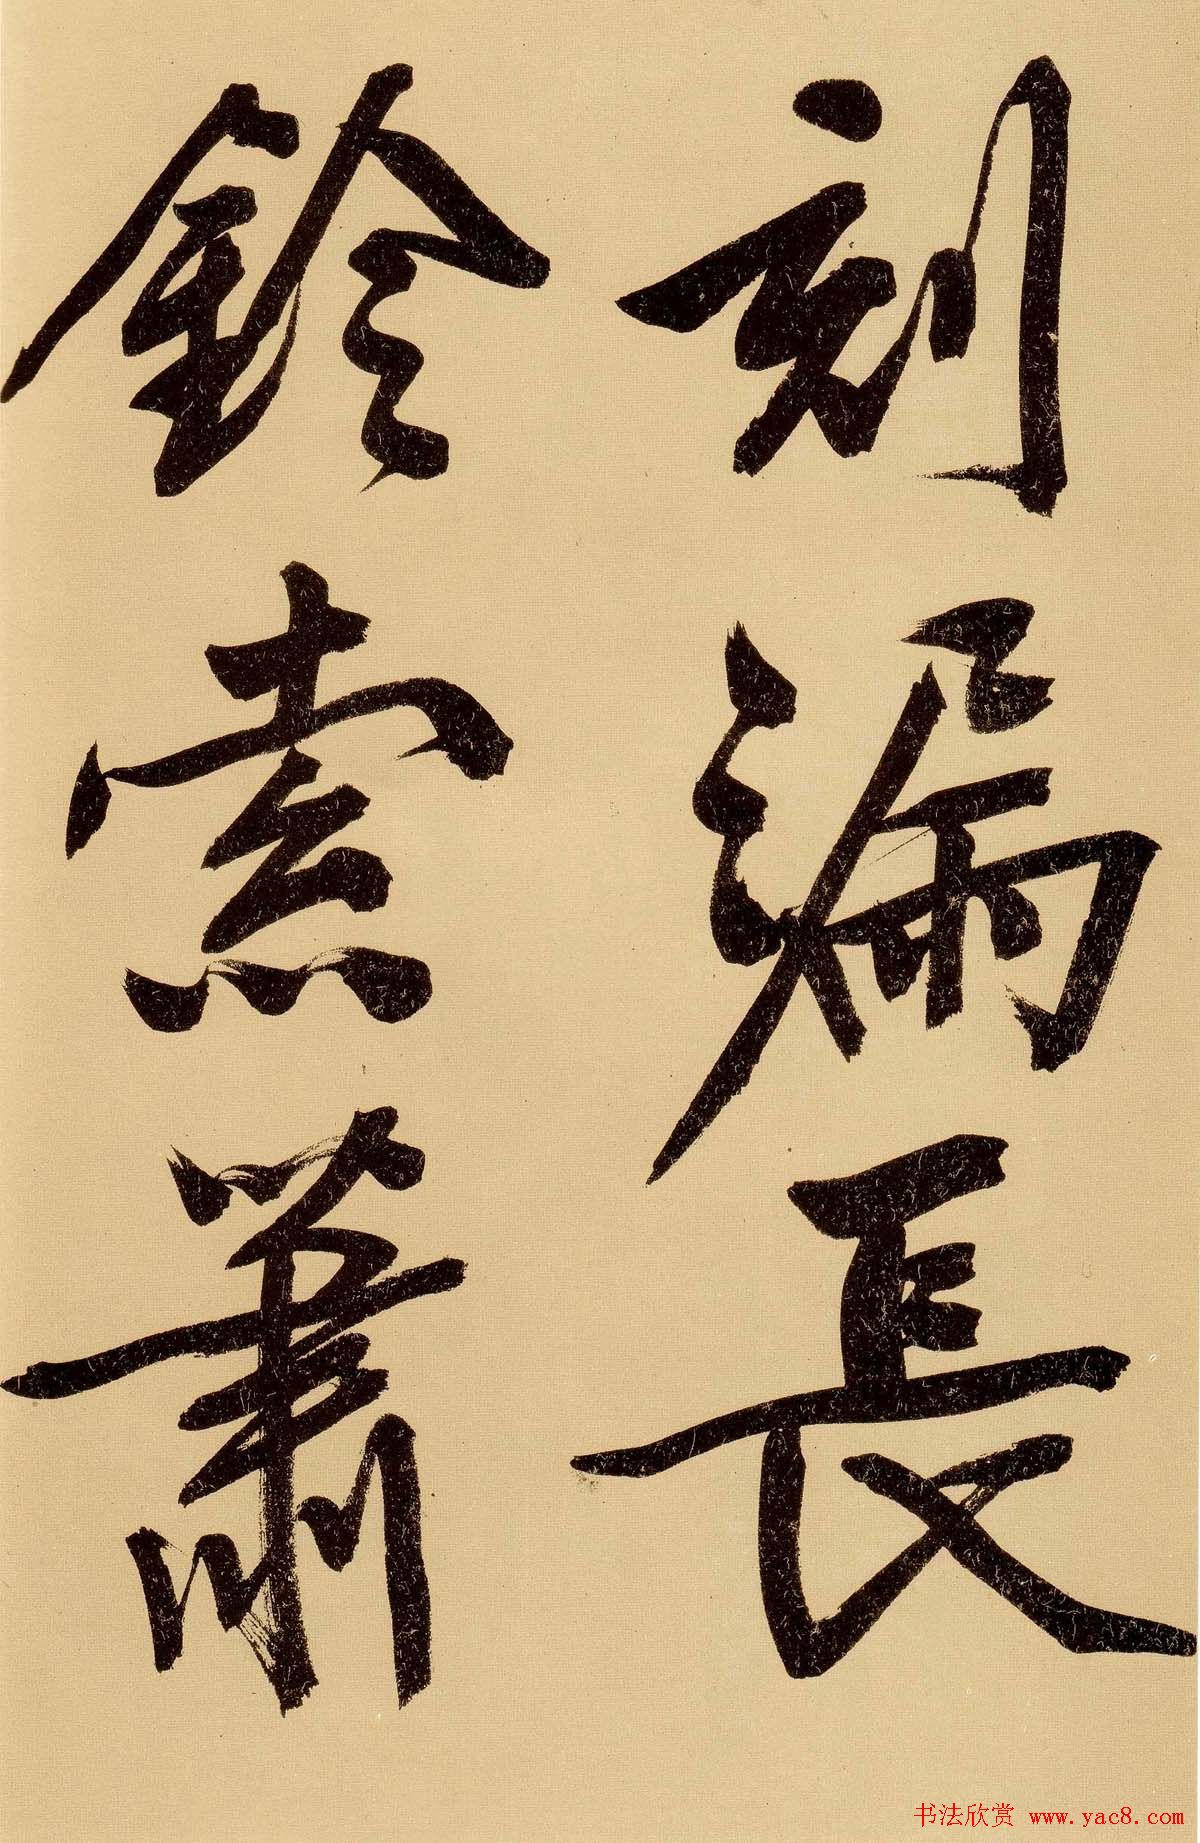 刻漏長
鈴索蕭
书法欣赏 www.yac8.com